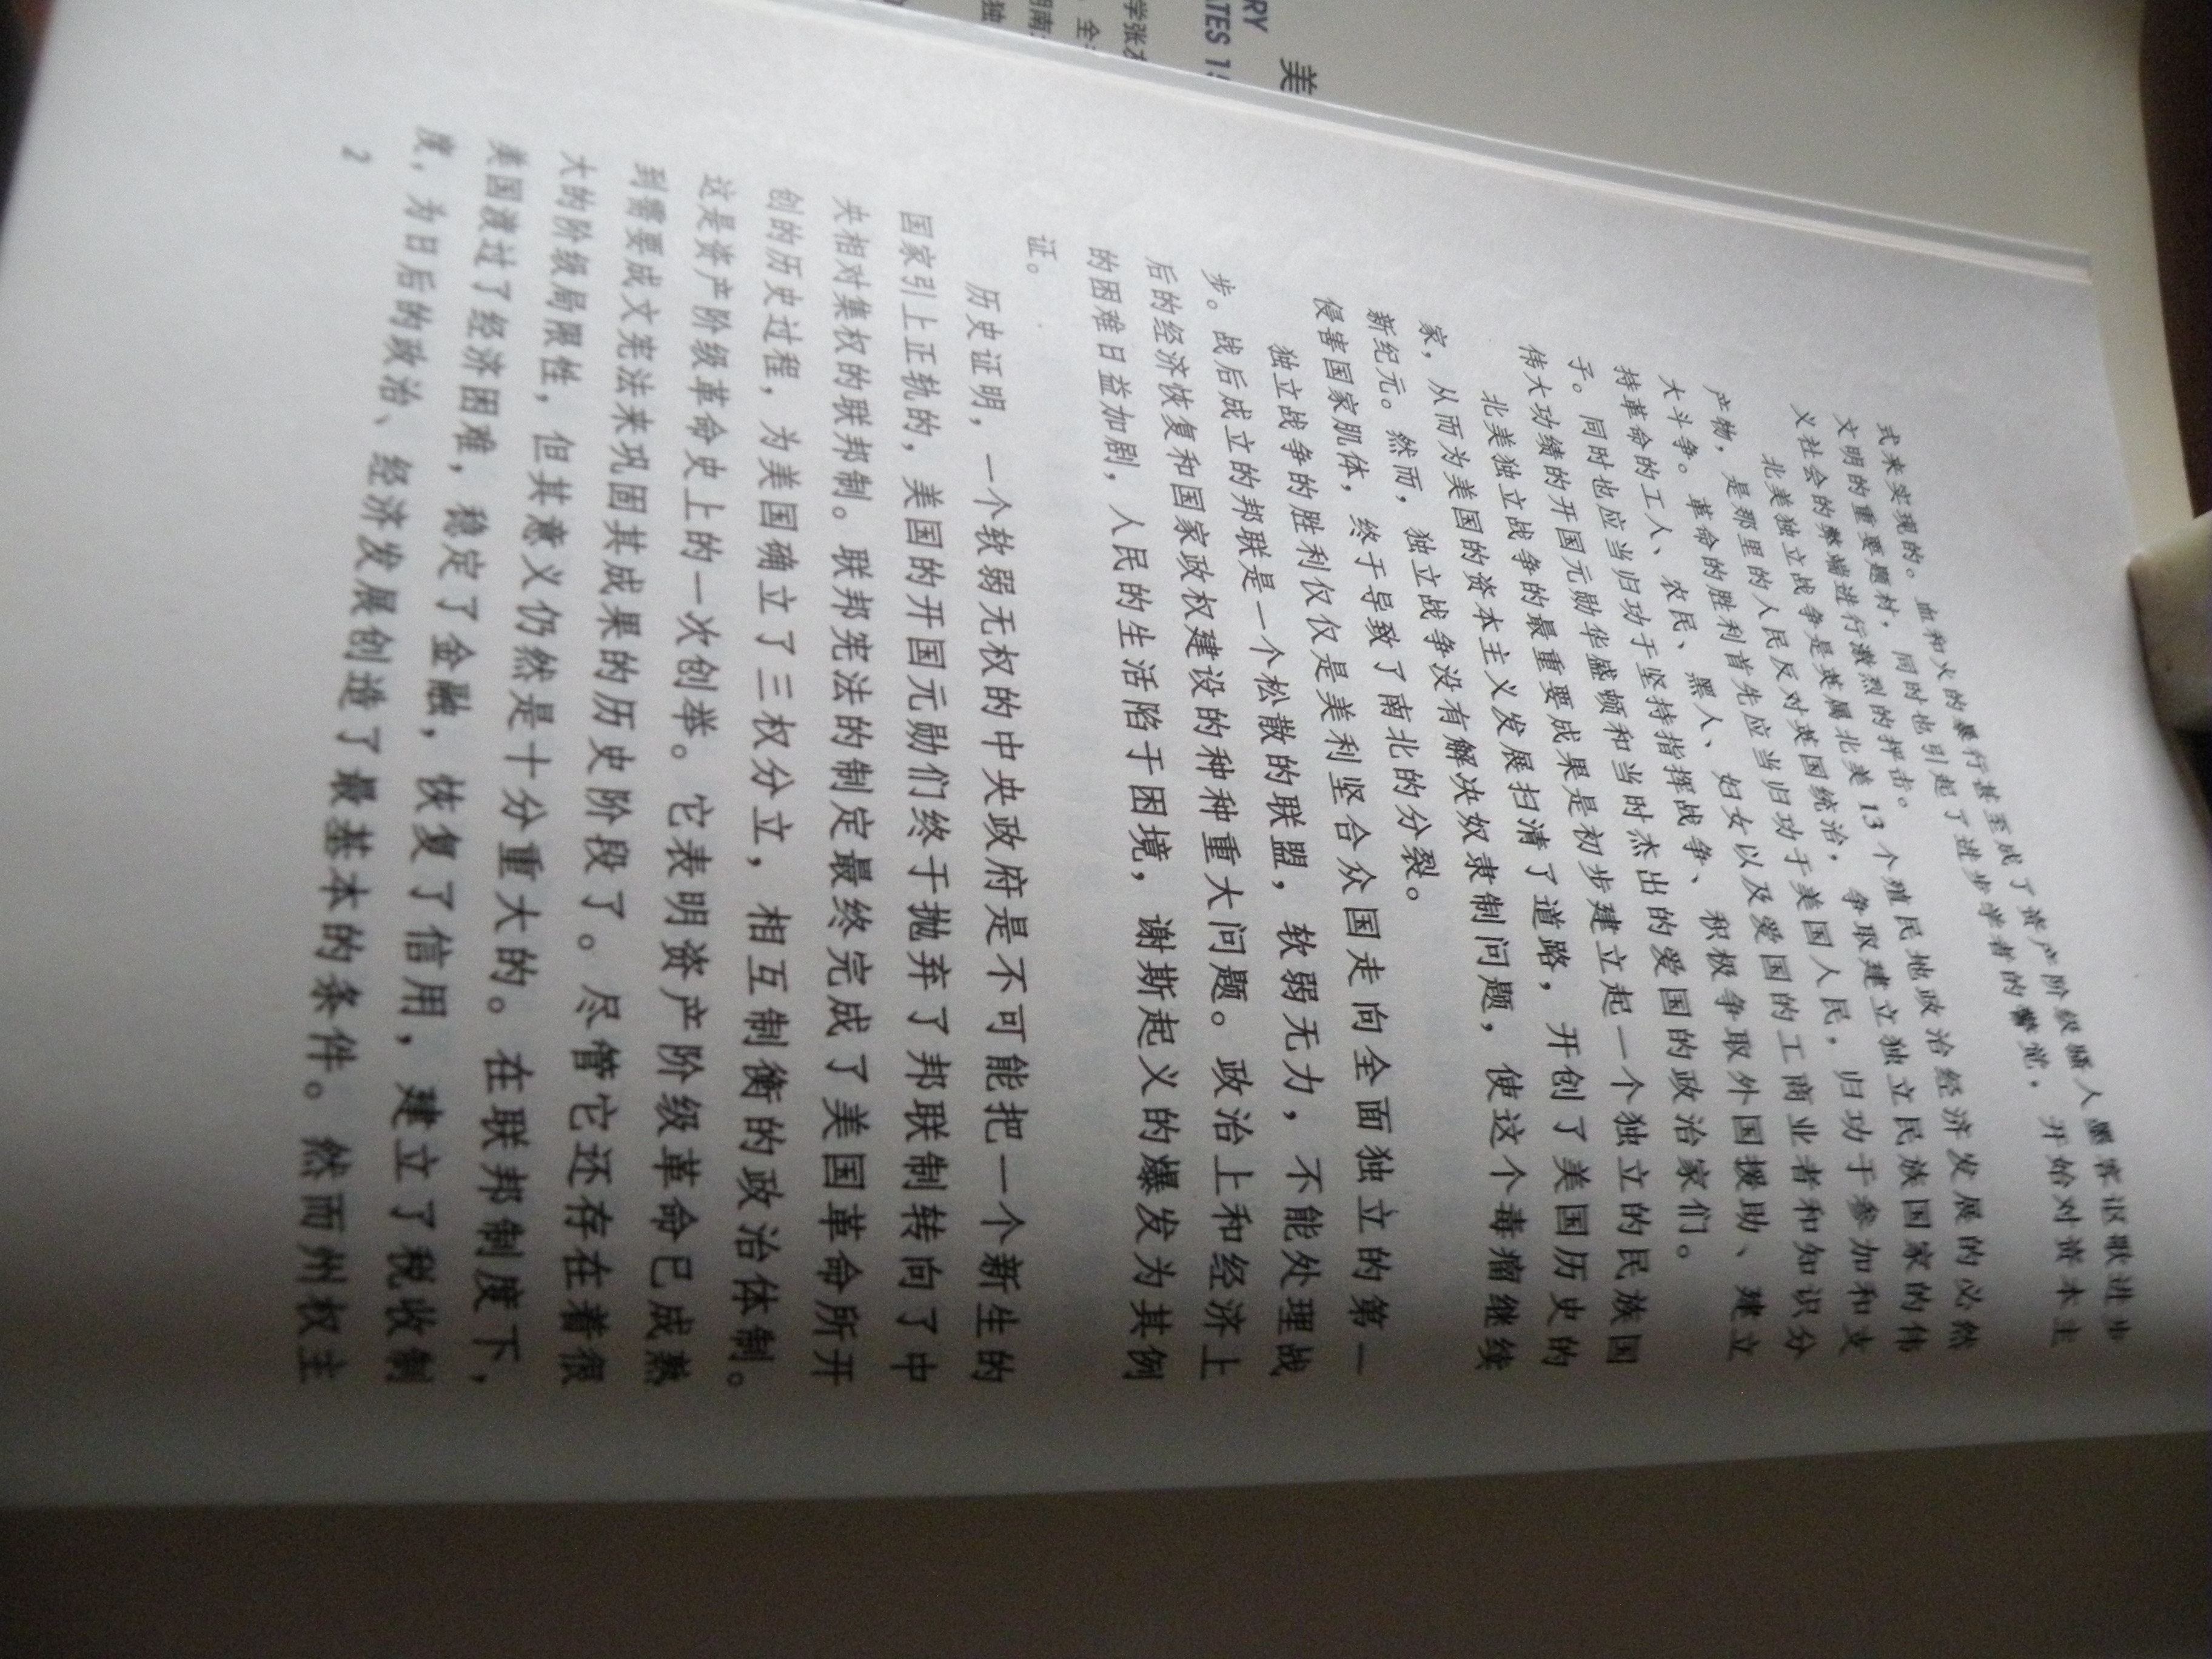 式来实现的。血和火的暴行甚至成了资产阶级骚人墨客讴歌进步
文明的重要题材，同时也引起了进步学者的警觉，开始对资本主
义社会的弊端进行激烈的抨击。
北美独立战争是英属北美 13 个殖民地政治经济发展的必然
产物，是那里的人民反对英国统治，争取建立独立民族国家的伟
大斗争。革命的胜利首先应当归功于美国人民，归功于参加和支
持革命的工人、农民、黑人、妇女以及爱国的工商业者和知识分
子。同时也应当归功于坚持指挥战争、积极争取外国援助、建立
伟大功绩的开国元勋华盛顿和当时杰出的爱国的政治家们。
北美独立战争的最重要成果是初步建立起一个独立的民族国
家，从而为美国的资本主义发展扫清了道路，开创了美国历史的
新纪元。然而，独立战争没有解决奴隶制问题，使这个毒瘤继续
侵害国家肌体，终于导致了南北的分裂。
独立战争的胜利仅仅是美利坚合众国走向全面独立的第一
步。战后成立的邦联是一个松散的联盟，软弱无力，不能处理战
后的经济恢复和国家政权建设的种种重大问题。政治上和经济上
的困难日益加剧，人民的生活陷于困境，谢斯起义的爆发为其例
证。
历史证明，一个软弱无权的中央政府是不可能把一个新生的
国家引上正轨的，美国的开国元勋们终于抛弃了邦联制转向了中
央相对集权的联邦制。联邦宪法的制定最终完成了美国革命所开
创的历史过程，为美国确立了三权分立，相互制衡的政治体制。
这是资产阶级革命史上的一次创举。它表明资产阶级革命已成熟
到需要成文宪法来巩固其成果的历史阶段了。尽管它还存在着很
大的阶级局限性，但其意义仍然是十分重大的。在联邦制度下，
美国渡过了经济困难，稳定了金融，恢复了信用，建立了税收制
度，为日后的政治、经济发展创造了最基本的条件。然而州权主
2
美
RY
ATES 1
学张
全
湖南
独